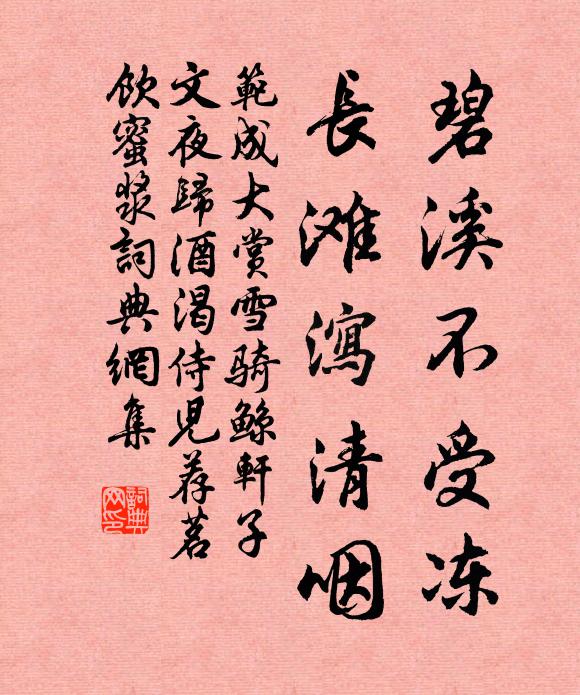 碧溪不受冻
長滩瀉清咽
範成大赏雪骑鲸軒子
文夜歸酒渴侍児荐茗
飲蜜漿詞典網集
詞典
网印